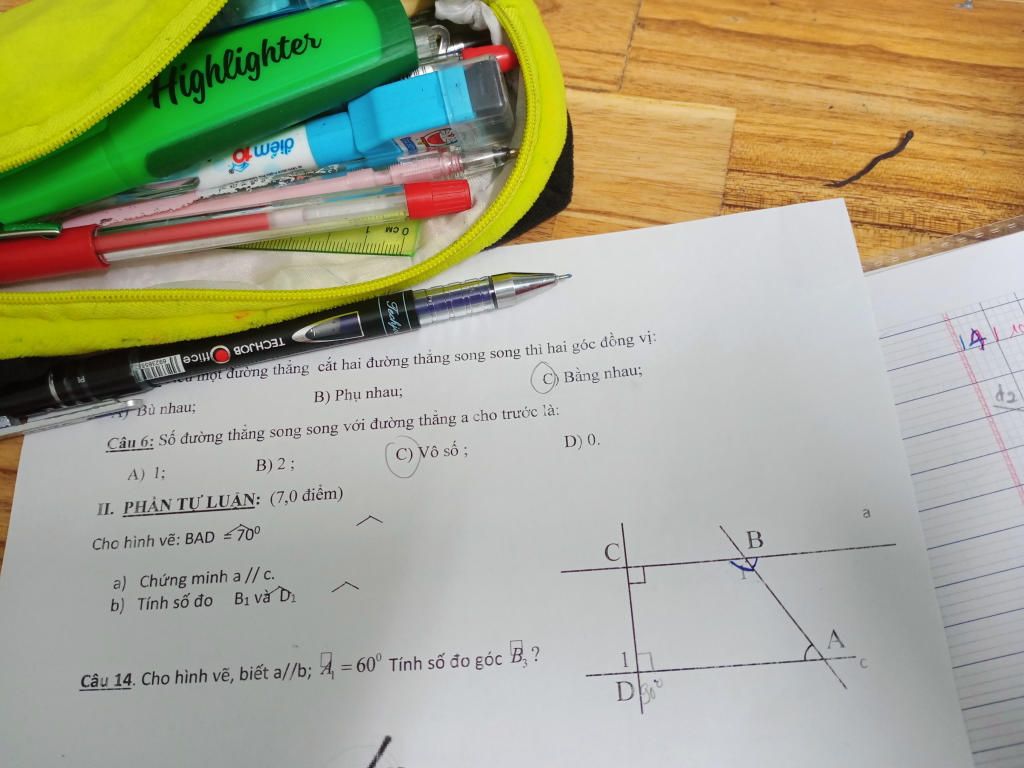 Highlighter
điểm
10
0 CM 1
TECHJOB Office
một đường thẳng cắt hai đường thẳng song song thì hai góc đồng vị:
A) Bù nhau; B) Phụ nhau; C) Bằng nhau;
Câu 6: Số đường thẳng song song với đường thẳng a cho trước là:
A) 1; B) 2 ; C) Vô số ; D) 0.
II. PHẦN TỰ LUẬN: (7,0 điểm)
Cho hình vẽ: BAD = 70⁰
a) Chứng minh a // c.
b) Tính số đo B₁ và D₁
a
C B
1
A
c
1
D 90°
Câu 14. Cho hình vẽ, biết a//b; A₁ = 60⁰ Tính số đo góc B₃ ?
14
d2